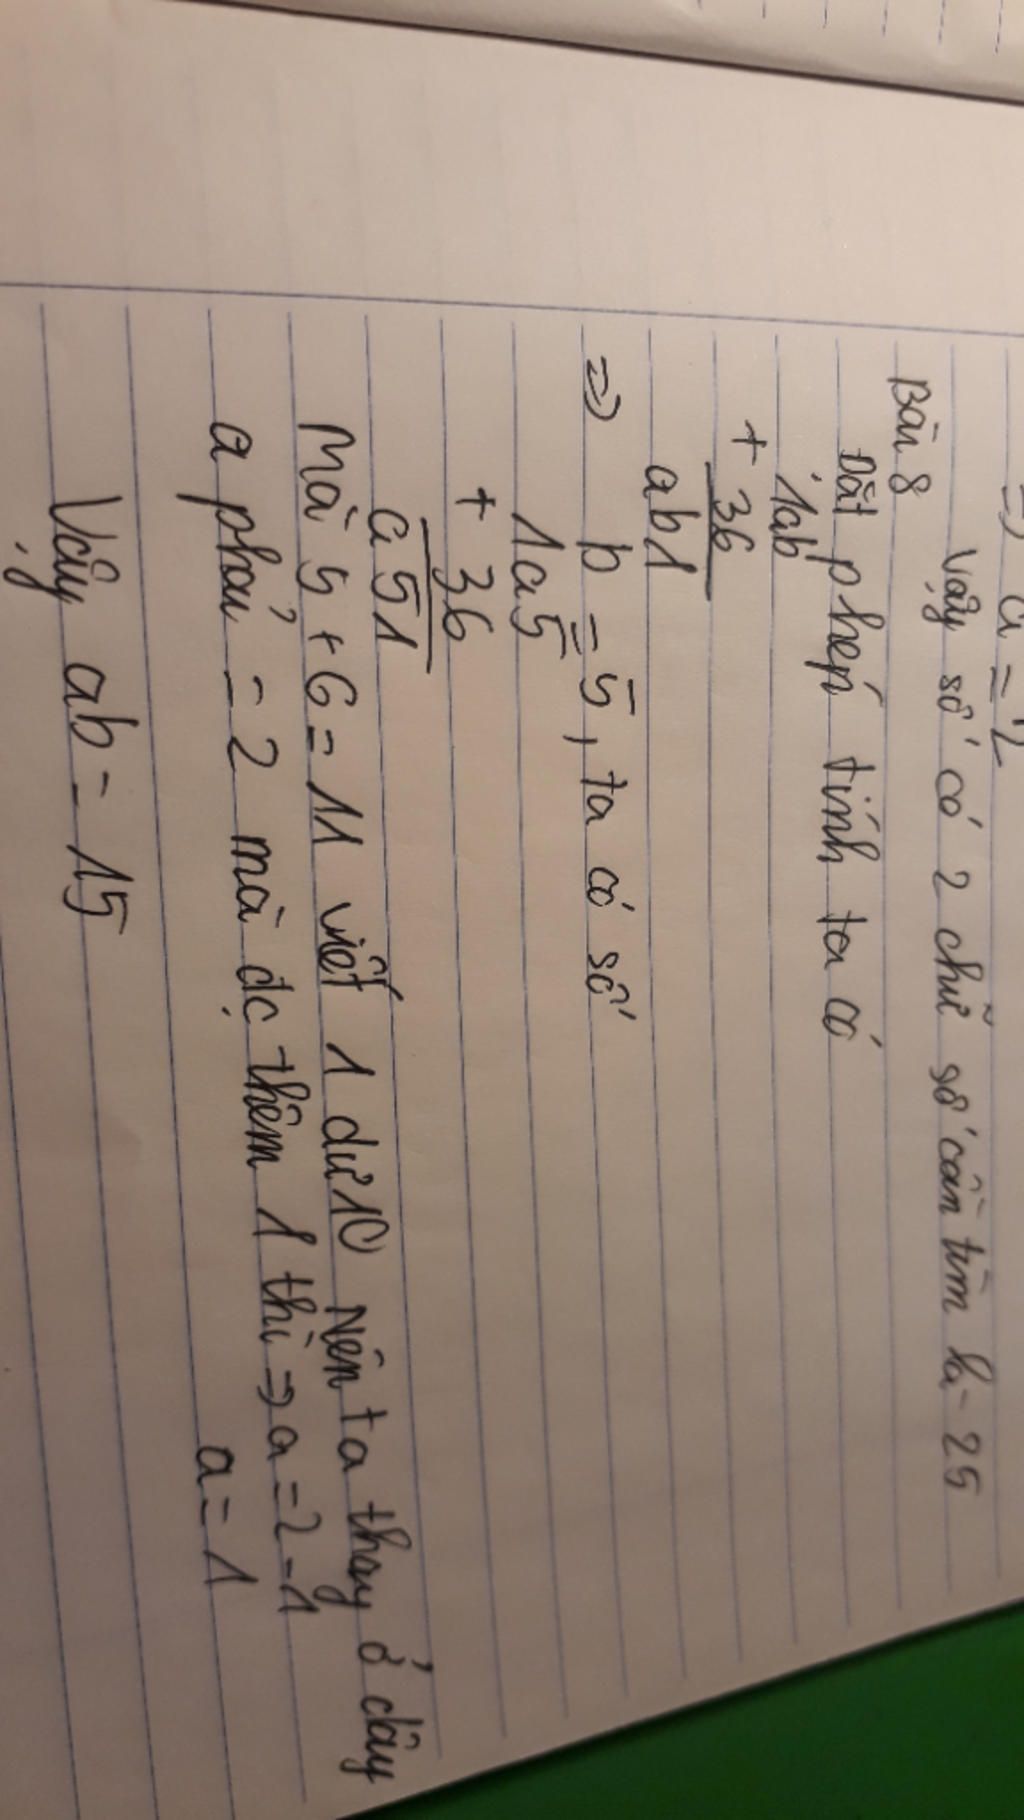 =) a = 2
Vậy số có 2 chữ số cần tìm là 25
Bài 8
Đặt phép tính ta có
1ab
+ 36
ab1
=) b = 5, ta có số
1a5
+ 36
a51
Mà 5 + 6 = 11 viết 1 dư 10 Nên ta thay ở đây
a phải = 2 mà đc thêm 1 thì => a = 2 - 1
a = 1
Vậy ab = 15